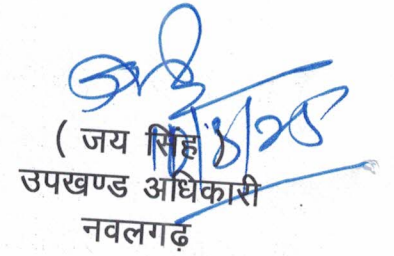 ( जय सिंह )
उपखण्ड अधिकारी
नवलगढ़